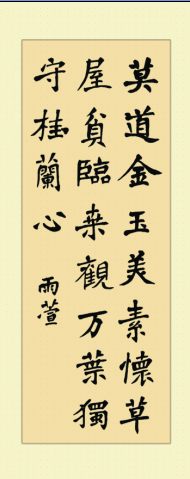 莫道金玉美素懷草
屋貧臨桒觀万葉獨
守桂蘭心
雨萱